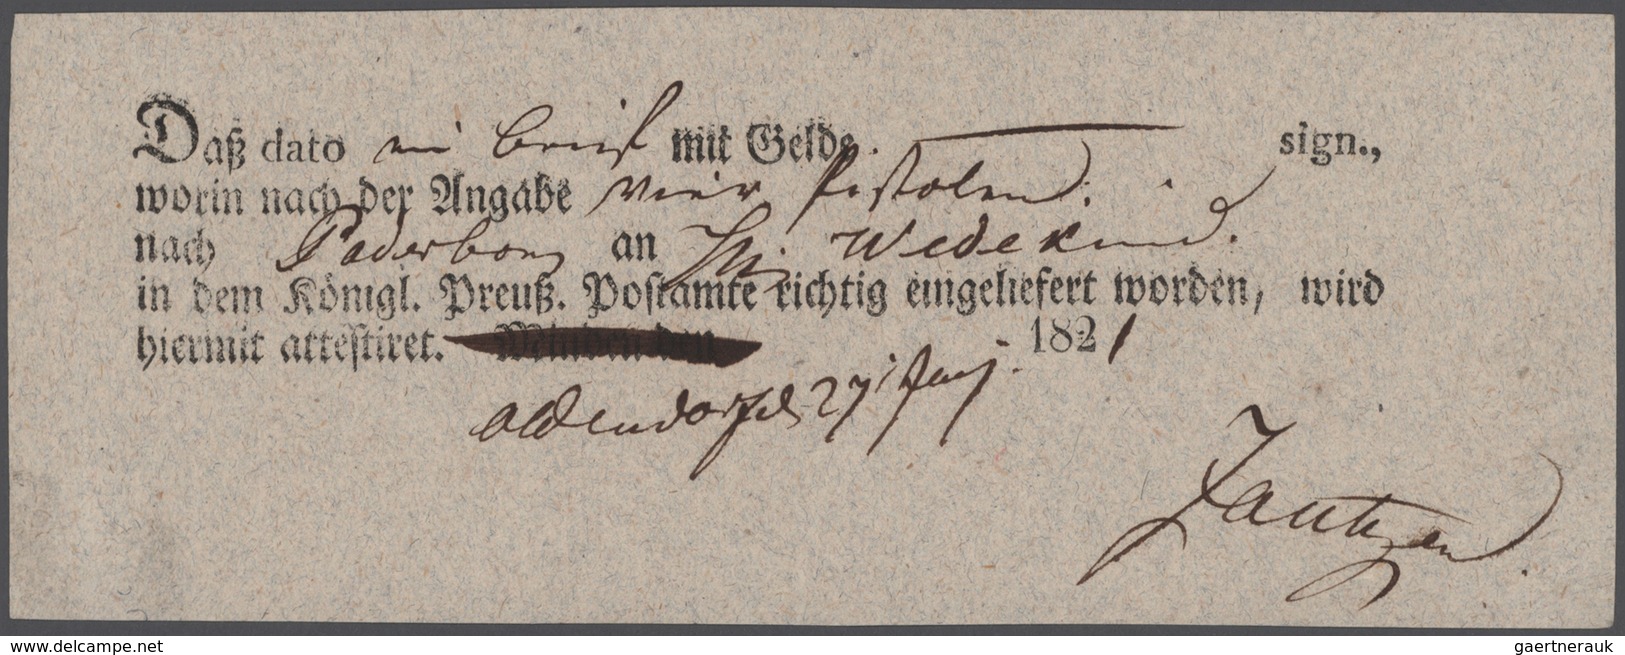 Daß dato ein brief mit Gelde. sign.,
worin nach der Angabe vier Pistolen.
nach Paderborn an Wedekind.
in dem Königl. Preuß. Postamte richtig eingeliefert worden, wird
hiermit attestiret. 1821
Oldendorf d 27 Juny.
delcampe.net
gaertnerauk